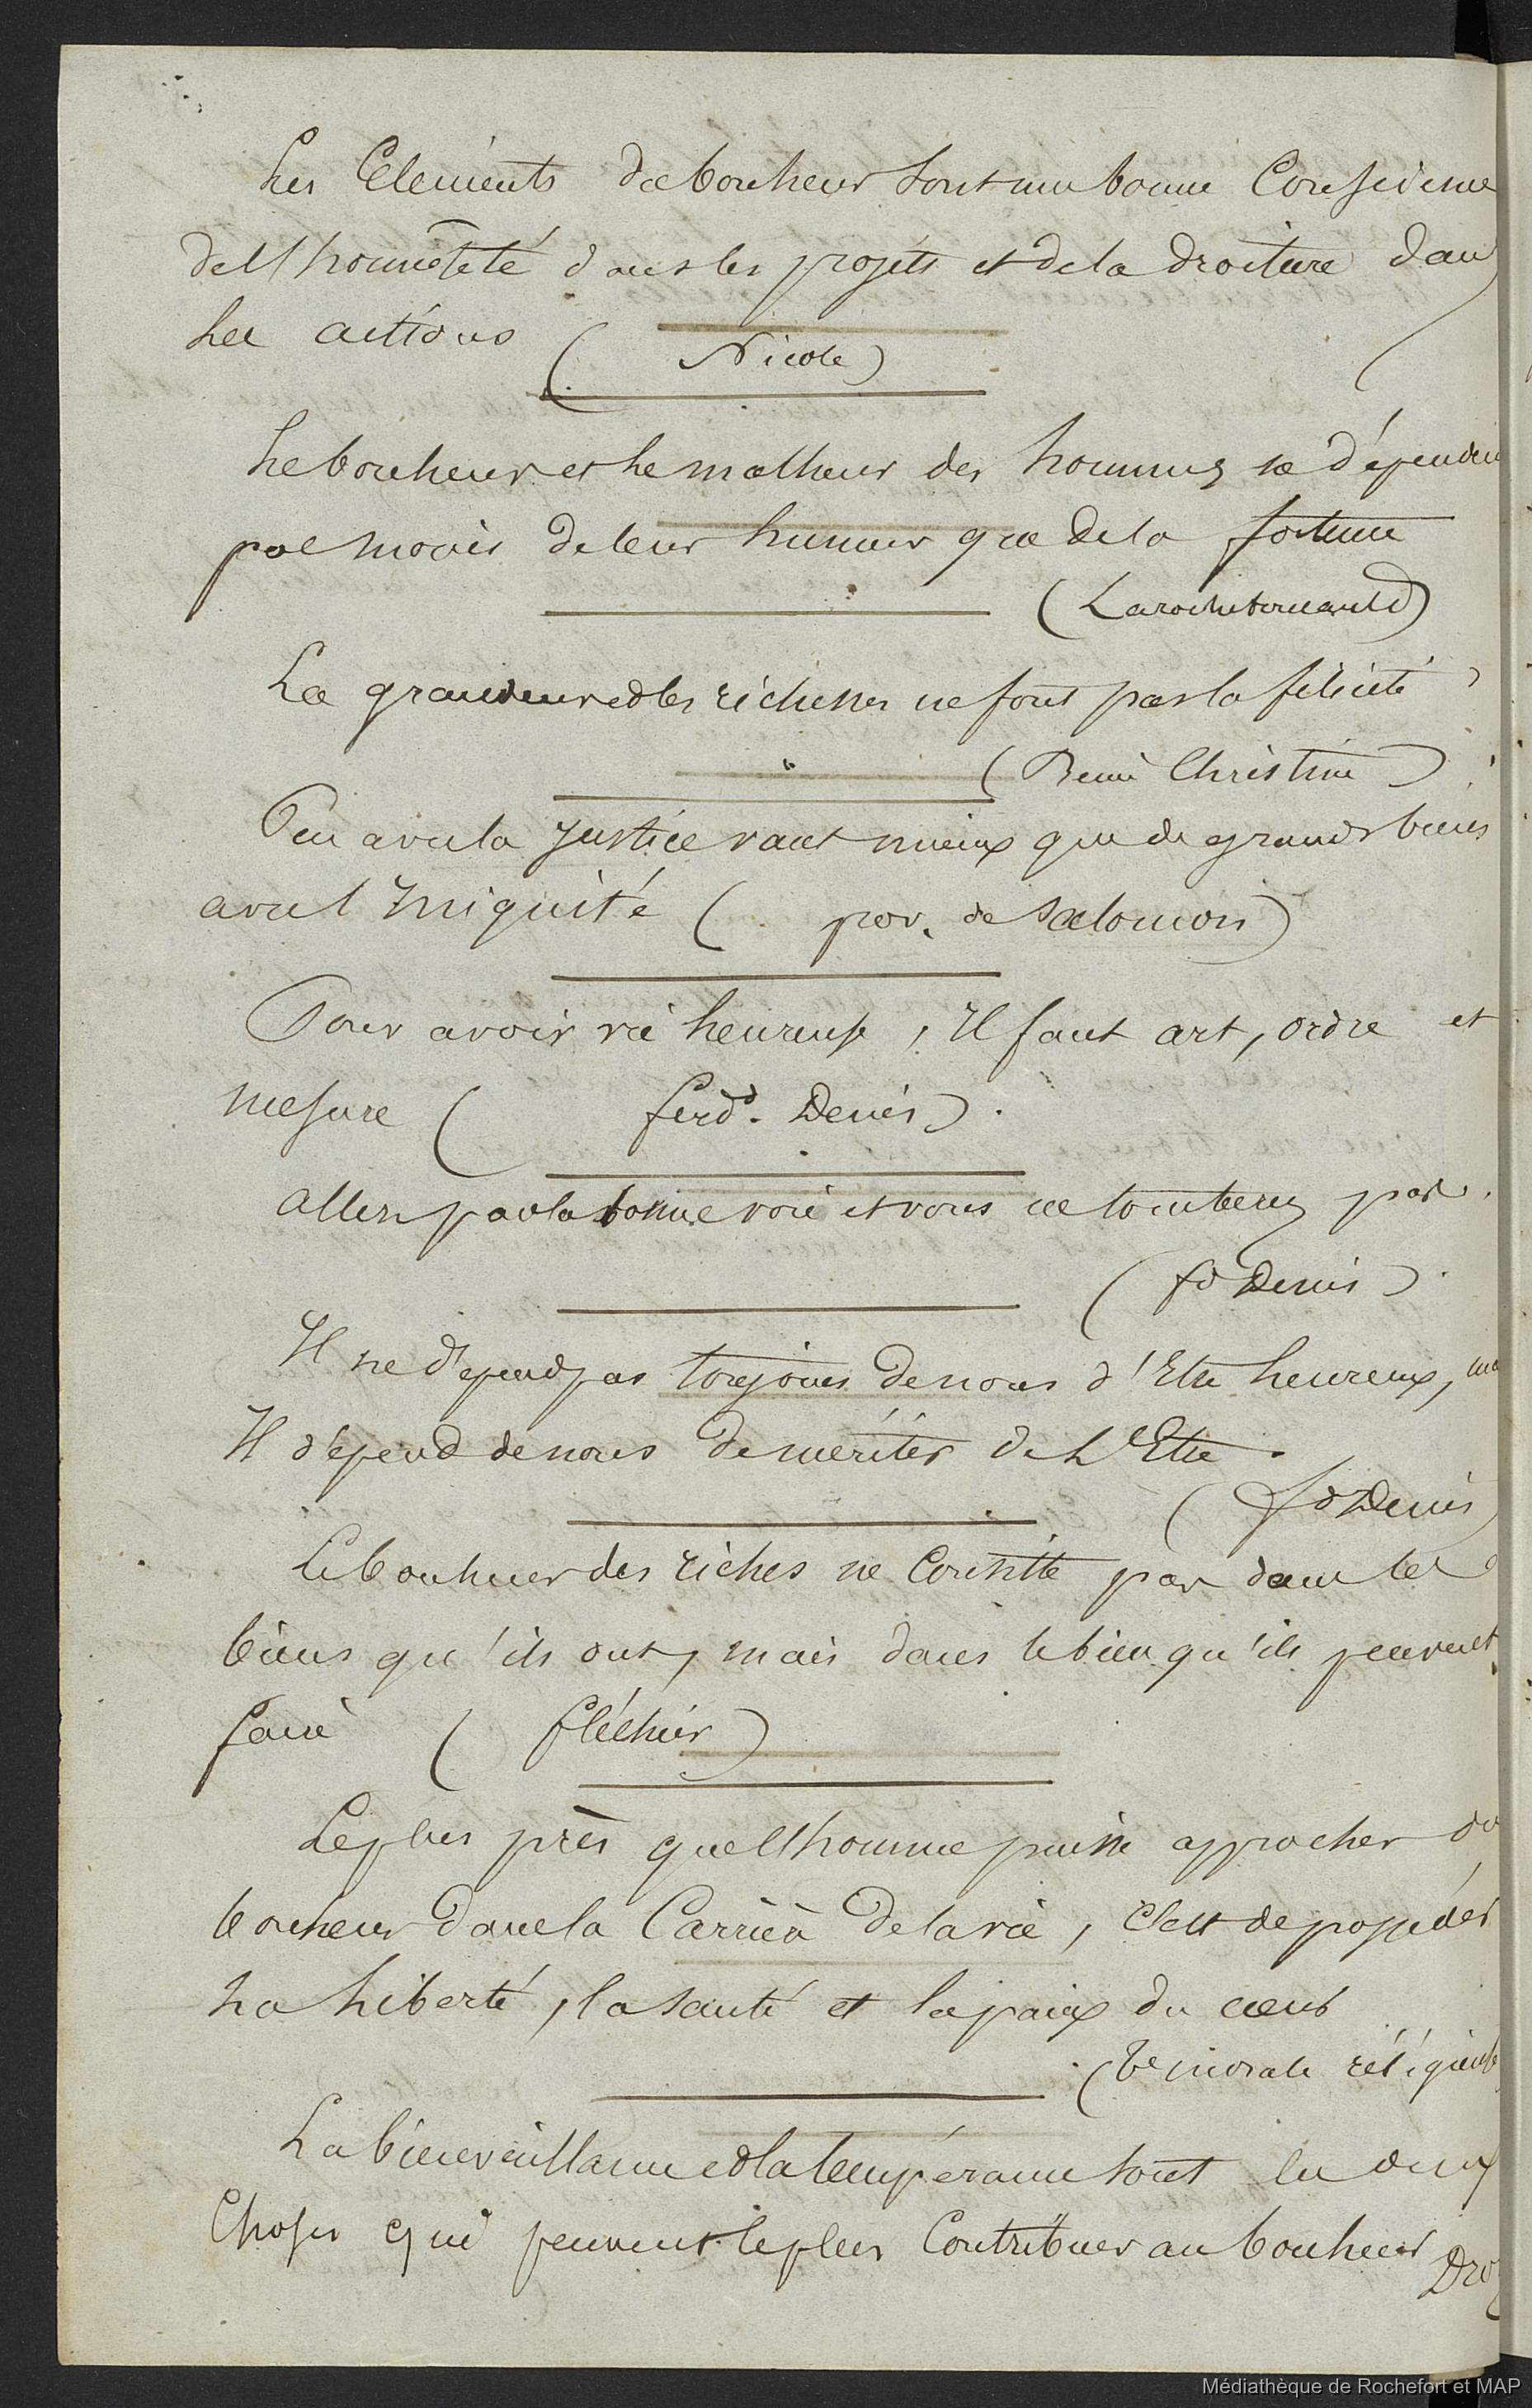 Les Eléments du bonheur sont une bonne Conscience
de l'honnêteté dans les projéts et de la droiture dans
les actions ( Nicole )
Le bonheur et le malheur des hommes ne dépenden
pas moins de leur humeur que de la fortune
( Larochefoucauld )
La grandeur et les richesses ne font pas la félicité
( Reine Christine )
Peu avec la justice vaut mieux que de grands biens
avec l'iniquité ( prov. de Salomon )
Pour avoir vie heureuse, Il faut art, ordre et
mesure ( ferd. Denis ).
Allez par la bonne voie et vous ne tomberez pas.
( fd Denis ).
Il ne dépend pas toujours de nous d'Etre heureux, ma
Il dépend de nous de mériter de L'Etre.
( fd Denis )
Le bonheur des riches ne Consiste pas dans les
biens qu'ils ont, mais dans le bien qu'ils peuvent
faire ( fléchier )
Le plus près que l'homme puisse approcher du
bonheur dans la Carrière de la vie, c'est de posséder
La Liberté, la santé et la paix du cœur
( morale réligieuse
La bienveillance et la tempérance sont les deux
Choses qui peuvent le plus Contribuer au bonheur
Droz
Médiathèque de Rochefort et MAP